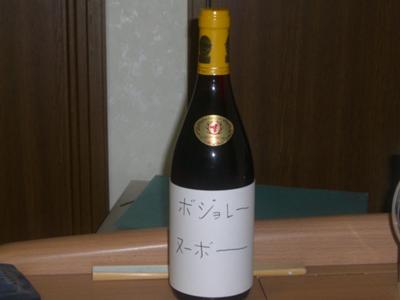 ボジョレー
ヌーボー